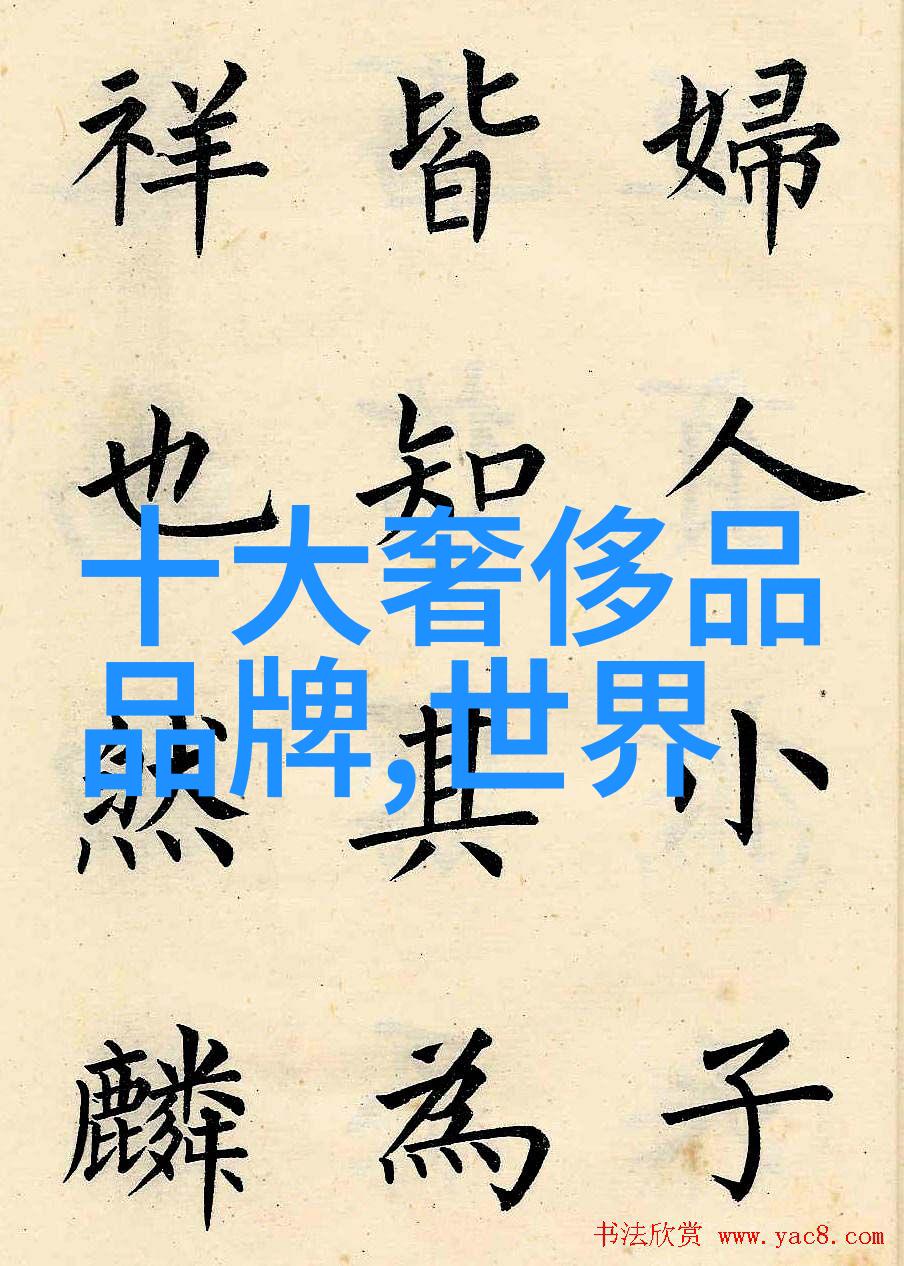 婦人小子
皆知其為
祥也然麟
十大奢侈品
品牌,世界
书法欣赏 www.yac8.com